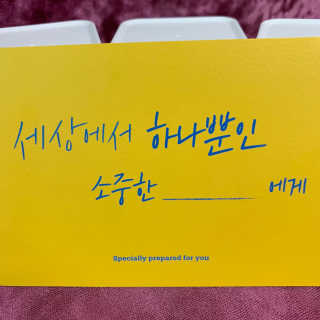 세상에서 하나뿐인
소중한 ________ 에게
Specially prepared for you